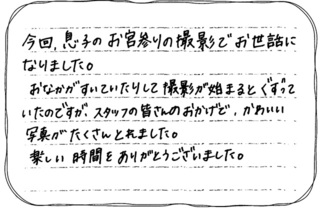 今回、息子のお宮参りの撮影でお世話に
なりました。
おなかがすいていたりして撮影が始まるとぐずって
いたのですが、スタッフの皆さんのおかげで、かわいい
写真がたくさんとれました。
楽しい時間をありがとうございました。